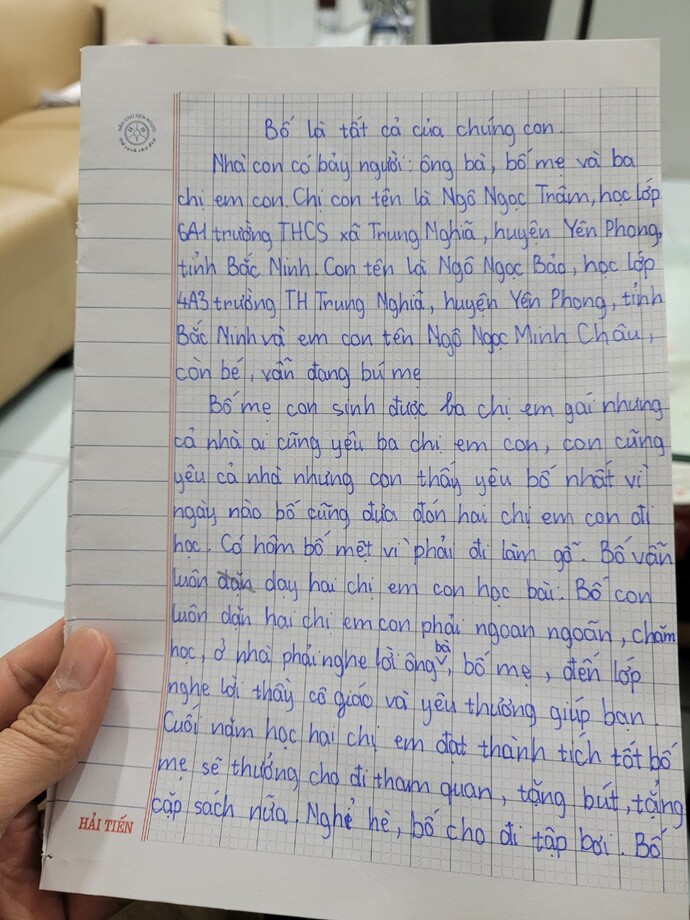 Bố là tất cả của chúng con.
Nhà con có bảy người: ông bà, bố mẹ và ba
chị em con. Chị con tên là Ngô Ngọc Trâm, học lớp
6A1 trường THCS xã Trung Nghiã, huyện Yên Phong,
tỉnh Bắc Ninh. Con tên là Ngô Ngọc Bảo, học lớp
4A3 trường TH Trung Nghiã, huyện Yên Phong, tỉnh
Bắc Ninh và em con tên Ngô Ngọc Minh Châu,
còn bé, vẫn đang bú mẹ
Bố mẹ con sinh được ba chị em gái nhưng
cả nhà ai cũng yêu ba chị em con, con cũng
yêu cả nhà nhưng con thấy yêu bố nhất vì
ngày nào bố cũng đưa đón hai chị em con đi
học. Có hôm bố mệt vì phải đi làm gỗ. Bố vẫn
luôn dặn dạy hai chị em con học bài. Bố con
luôn dặn hai chị em con phải ngoan ngoãn, chăm
học, ở nhà phải nghe lời ông bà, bố mẹ, đến lớp
nghe lời thầy cô giáo và yêu thương giúp bạn.
Cuối năm học hai chị em đạt thành tích tốt bố
mẹ sẽ thưởng cho đi tham quan, tặng bút, tặng
cặp sách nữa. Nghỉ hè, bố cho đi tập bơi. Bố
HẢI TIẾN